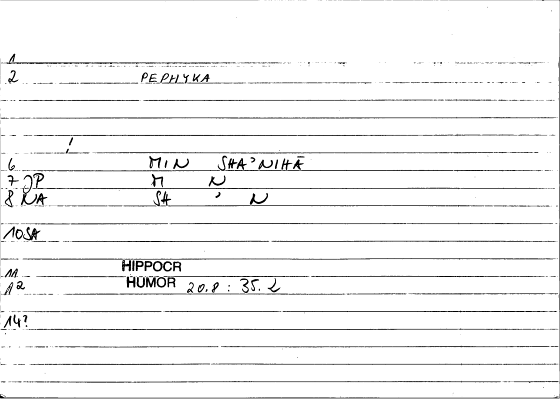 1
2 PEPHYKA
!
6 MIN SHA'NIHĀ
7 JP M N
8 NA SH ' N
10SA
11 HIPPOCR
12 HUMOR 20.8 : 35.2
14?